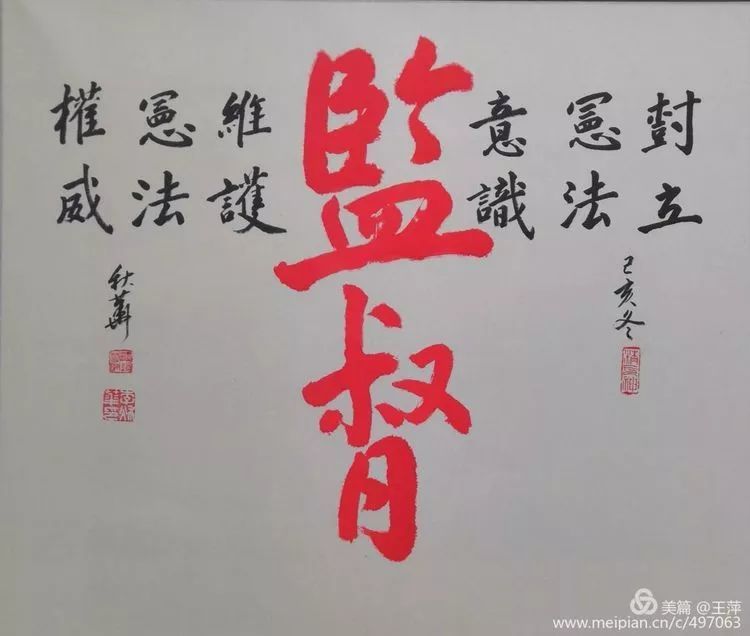 尌立
憲法
意識
己亥冬
監督
維護
憲法
權威
秋華
美篇 @王萍
www.meipian.cn/c/497063